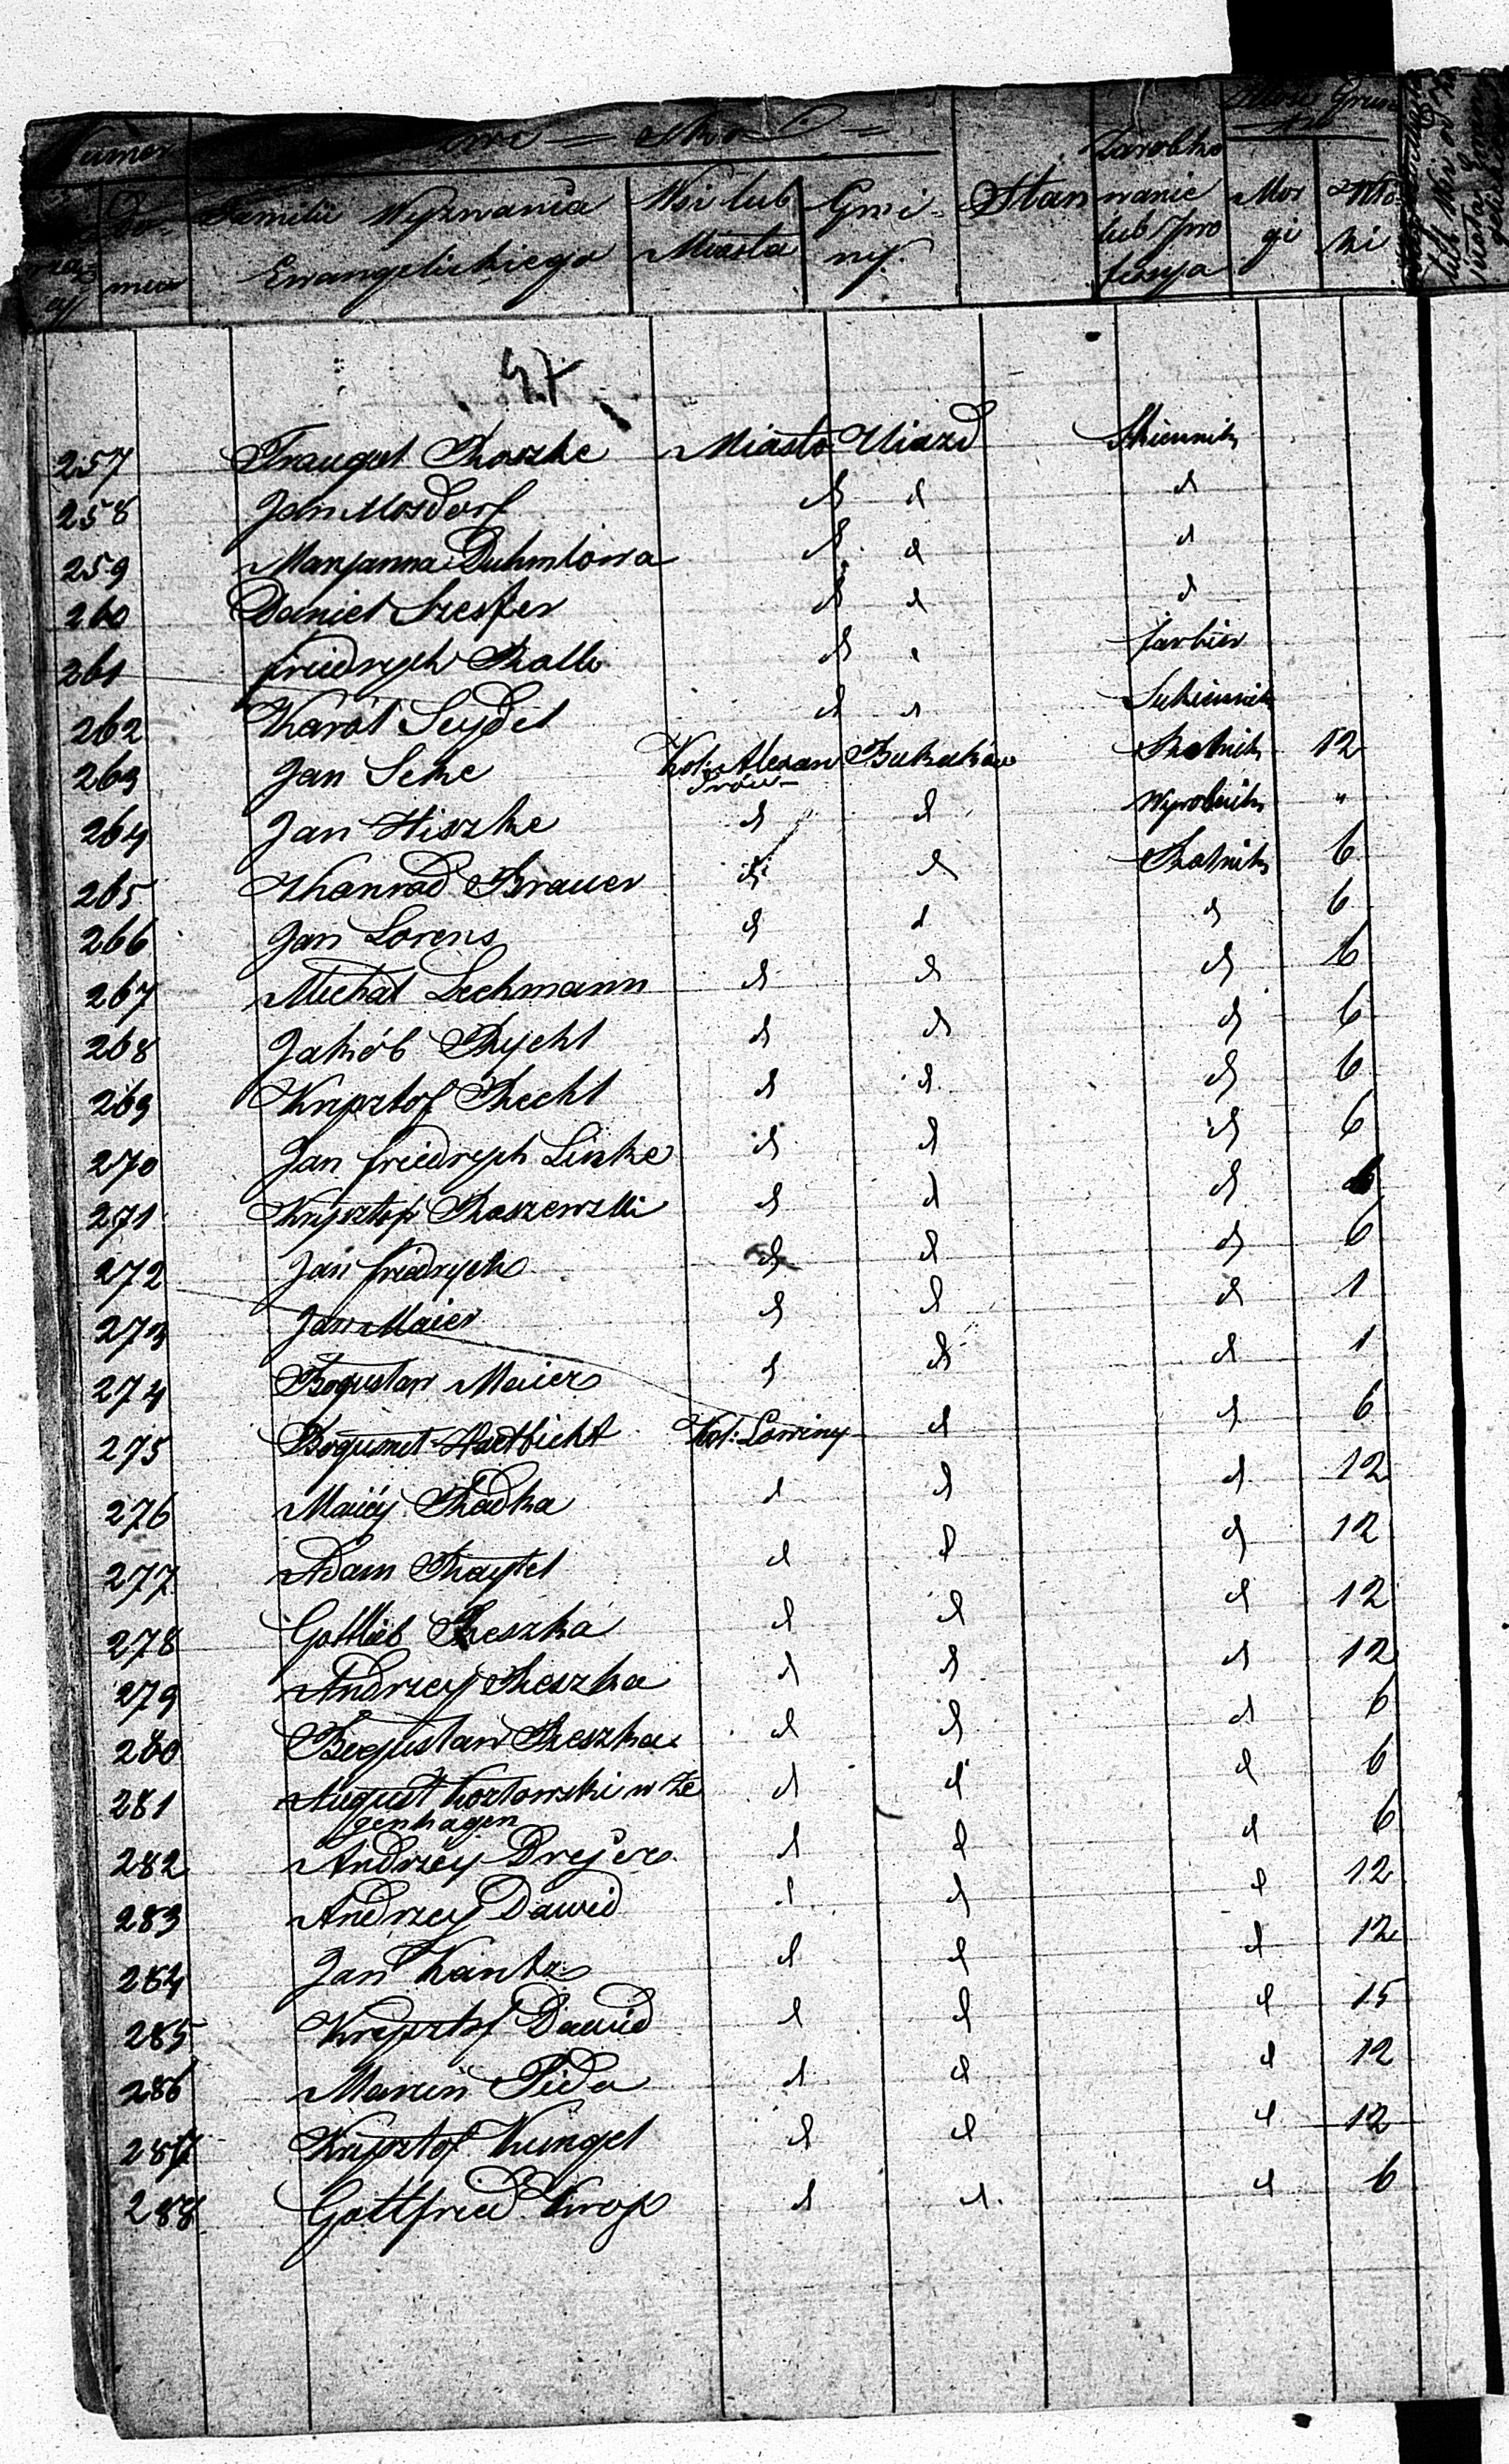 Numer
Familii Wyznania Wsi lub Gmi- Stan Zarobko
Ewangelickiego Miasta ny. wanie Mor
lub Pro gi
fessya
257 Traugot Roszke Miasto Uiazd Skiennik
258 Jan Mosdorf d d d
259 Maryanna Duhmlowa d d d
260 Daniel Szesfer d d d
261 Friedrych Rolle d d farbier
262 Karol Seydel d d Sukiennik
263 Jan Seke Kol: Alexan Bukaków Rolnik 12
drów
264 Jan Hiszke d d Wyrobnik "
265 Khonrad Brauer d d Rolnik 6
266 Jan Lorens d d d 6
267 Michał Lechmann d d d 6
268 Jakób Rycht d d d 6
269 Krysztof Recht d d d 6
270 Jan friedrych Linke d d d 6
271 Krysztof Roszewski d d d 6
272 Jan friedrych d d d 6
273 Jan Maier d d d 1
274 Bogusław Maier d d d 1
275 Bogumeł Hartbicht Kol: Lowiny d d 6
276 Maciéy Radka d d d 12
277 Adam Raytel d d d 12
278 Gottlieb Reszka d d d 12
279 Andrzey Reszka d d d 12
280 Bogusław Reszka d d d 6
281 August Kozłowski w Ze d d d 6
genhagen
282 Andrzéy Drejer d d d 6
283 Andrzey Dawid d d d 12
284 Jan Kantz d d d 12
285 Krysztof Dawid d d d 15
286 Marcin Pida d d d 12
287 Krysztof Kungel d d d 12
288 Gottfried Krop d d d 6